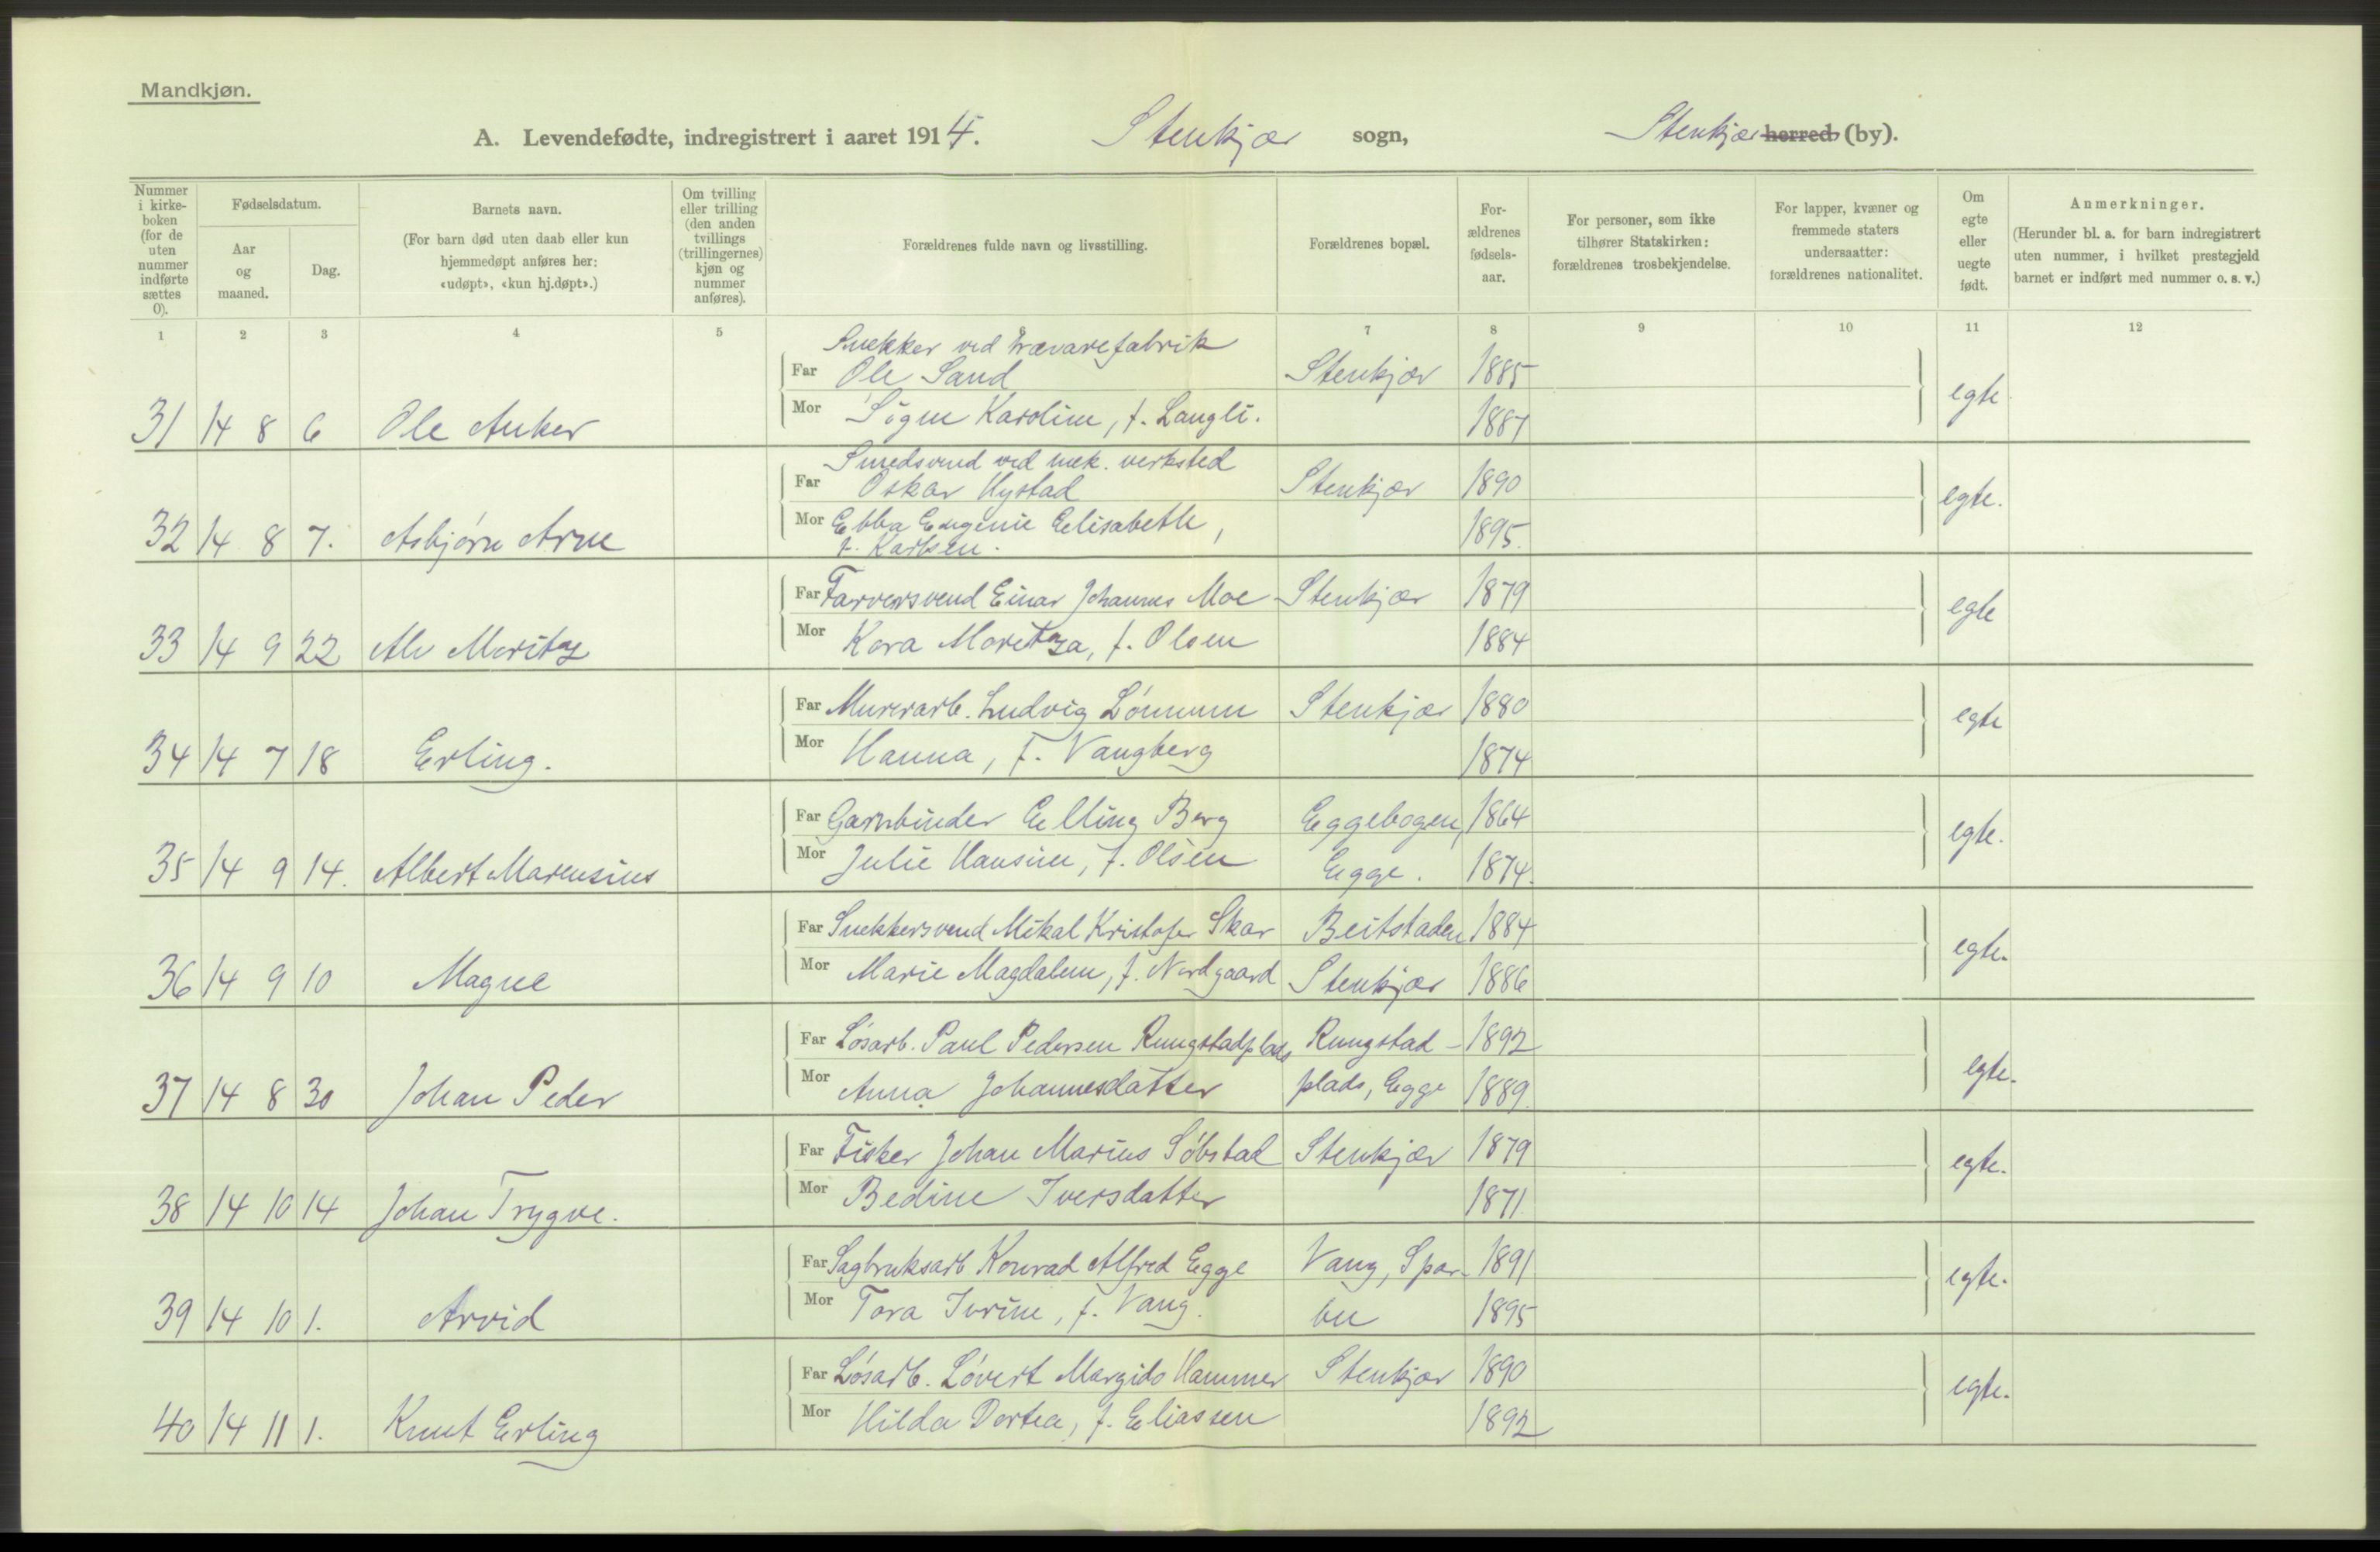 Mandkjøn.
A. Levendefødte, indregistrert i aaret 1914. Stenkjær sogn, Stenkjær herred (by).
Nummer i kirke-boken (for de uten nummer indførte sættes 0).
Fødselsdatum.
Aar og maaned.
Dag.
Barnets navn.
(For barn død uten daab eller kun hjemmedøpt anføres her: «udøpt», «kun hj.døpt».)
Om tvilling eller trilling (den anden tvillings (trillingernes) kjøn og nummer anføres).
Forældrenes fulde navn og livsstilling.
Forældrenes bopæl.
For-ældrenes fødsels-aar.
For personer, som ikke tilhører Statskirken: forældrenes trosbekjendelse.
For lapper, kvæner og fremmede staters undersaatter: forældrenes nationalitet.
Om egte eller uegte født.
Anmerkninger.
(Herunder bl. a. for barn indregistrert uten nummer, i hvilket prestegjeld barnet er indført med nummer o. s. v.)
1 2 3 4 5 7 8 9 10 11 12
Snekker ved trævarefabrik
Far Ole Sand Stenkjær 1885
31 14 8 6 Ole Anker Mor Signe Karoline, f. Langli. 1887 egte
Smedsvend ved mek. verksted
Far Oskar Hystad Stenkjær 1890
32 14 8 7. Asbjørn Arne Mor Ebba Eugenie Elisabeth, 1895. egte.
f. Karlsen.
Far Farversvend Einar Johannes Moe Stenkjær 1879
33 14 9 22 Alv Moritz Mor Kora Moritza, f. Olsen 1884 egte
Far Murerarb. Ludvig Lønnum Stenkjær 1880
34 14 7 18 Erling. Mor Hanna, f. Vangberg 1874 egte
Far Garnbinder Elling Berg Eggebogen, 1864
35 14 9 14. Albert Marensius Mor Julie Hansine, f. Olsen Egge. 1874. egte.
Far Snekkersvend Mikal Kristofer Skar Beitstaden 1884
36 14 9 10 Magne Mor Marie Magdalene, f. Nordgaard Stenkjær 1886 egte.
Far Løsarb. Paul Pedersen Rungstadplads Rungstad- 1892
37 14 8 30 Johan Peder Mor Anna Johannesdatter plads, Egge 1889. egte.
Far Fisker Johan Marius Søbstad Stenkjær 1879
38 14 10 14 Johan Trygve. Mor Bedine Iversdatter 1871 egte.
Far Sagbruksarb Konrad Alfred Egge Vang, Spar- 1891
39 14 10 1. Arvid Mor Tora Ivrine, f. Vang. bu 1895 egte.
Far Løsarb. Løvert Margido Hammer Stenkjær 1890
40 14 11 1. Knut Erling Mor Hilda Dortea, f. Eliassen 1892 egte.